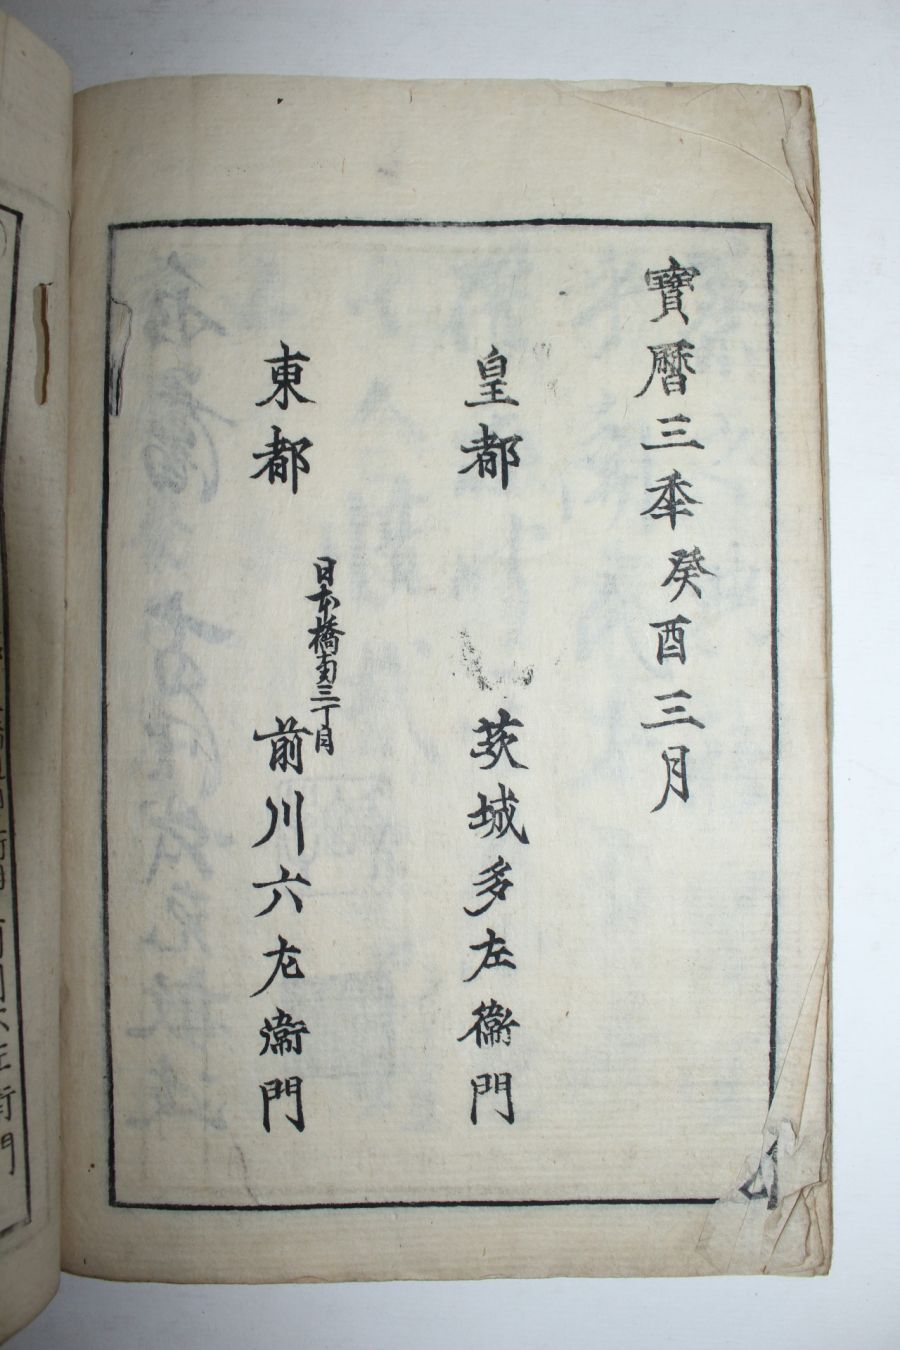 寶暦三秊癸酉三月
皇都 茨城多左衞門
日本橋南三丁目
東都 前川六左衞門